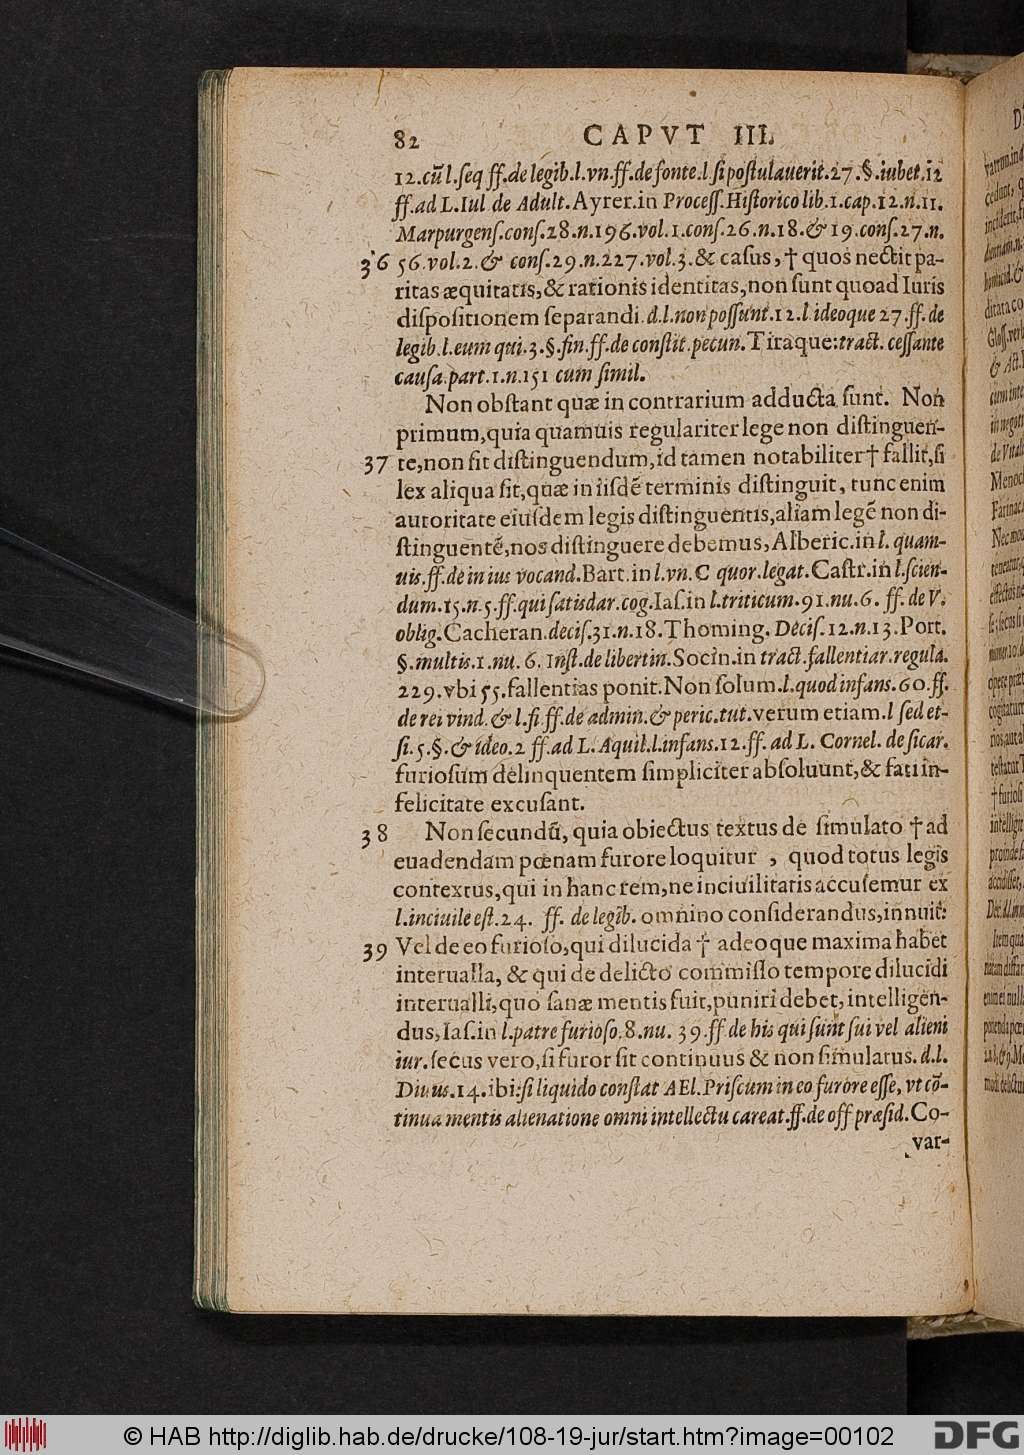 82 CAPVT III.
12.cū l.ſeq ff.de legib.l.vn.ff.de fonte.l.ſi poſtulauerit.27.§.iubet.12
ff.ad L.Iul de Adult.Ayrer.in Proceſſ.Hiſtorico lib.1.cap.12.n.11.
Marpurgenſ.conſ.28.n.196.vol.1.conſ.26.n.18.& 19.conſ.27.n.
36 56.vol.2.& conſ.29.n.227.vol.3.& caſus,† quos nectit pa-
ritas æquitatis,& rationis identitas,non ſunt quoad Iuris
diſpoſitionem ſeparandi.d.l.non poſſunt.12.l ideoque 27.ff.de
legib.l.eum qui.3.§.fin.ff.de conſtit.pecun.Tiraque:tract.ceſſante
cauſa.part.1.n.151 cum ſimil.
Non obſtant quæ in contrarium adducta ſunt. Non
primum,quia quamuis regulariter lege non diſtinguen-
37 te,non ſit diſtinguendum,id tamen notabiliter† fallit,ſi
lex aliqua ſit,quæ in iiſdē terminis diſtinguit, tunc enim
autoritate eiuſdem legis diſtinguentis,aliam legē non di-
ſtinguentē,nos diſtinguere debemus,Alberic.in l. quam-
uis.ff.de in ius vocand.Bart.in l.vn.C quor.legat.Caſtr.in l.ſcien-
dum.15.n.5.ff.qui ſatisdar.cog.Iaſ.in l.triticum.91.nu.6. ff. de V.
oblig.Cacheran.deciſ.31.n.18.Thoming. Deciſ.12.n.13.Port.
§.multis.1.nu. 6. Inſt.de libertin.Socin.in tract.fallentiar.regula.
229.vbi 55.fallentias ponit.Non ſolum.l.quod infans.60.ff.
de rei vind. & l.ſi ff.de admin.& peric.tut.verum etiam.l ſed et-
ſi.5.§.& ideo.2 ff.ad L. Aquil.l.infans.12.ff. ad L. Cornel. de ſicar.
furioſum delinquentem ſimpliciter abſoluunt,& fati in-
felicitate excuſant.
38 Non ſecundū, quia obiectus textus de ſimulato † ad
euadendam pœnam furore loquitur , quod totus legis
contextus,qui in hanc rem,ne inciuilitatis accuſemur ex
l.inciuile eſt.24. ff. de legib. omnino conſiderandus,innuit:
39 Vel de eo furioſo,qui dilucida † adeoque maxima habet
interualla, & qui de delicto commiſſo tempore dilucidi
interualli,quo ſanæ mentis fuit,puniri debet, intelligen-
dus,Iaſ.in l.patre furioſo.8.nu. 39.ff de his qui ſunt ſui vel alieni
iur.ſecus vero,ſi furor ſit continuus & non ſimulatus. d.l.
Diuus.14.ibi:ſi liquido conſtat AEl.Priſcum in eo furore eſſe, vt cō-
tinua mentis alienatione omni intellectu careat.ff.de off præſid.Co-
var-
© HAB http://diglib.hab.de/drucke/108-19-jur/start.htm?image=00102
DFG